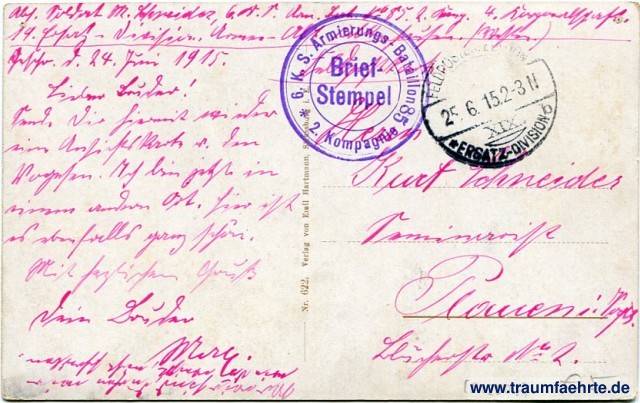 Abs. Soldat M. Schneider, 6. K. S. Arm. Batl. Nr. 85, 2. Komp. 4. Korporalschaft
19. Ersatz-Division, Armee-
Geschr. d. 24. Juni 1915.
Lieber Bruder!
Send. Dir hiermit wieder
eine Ansichtskarte v. den
Vogesen. Ich bin jetzt in
einem andern Ort. hier ist
es ebenfalls ganz schön.
Mit herzlichem Gruß
Dein Bruder
Max.
* 6. K. S. Armierungs-Bataillon 85 *
Brief-
Stempel
2. Kompagnie
25.6.15.2-3 N
XIX.
*ERSATZ-DIVISION b
Herrn
Kurt Schneider
Seminarist
Plauen i. Vogtl.
Blücherstr. No 2.
Nr. 622. Verlag von Emil Hartmann,
www.traumfaehrte.de